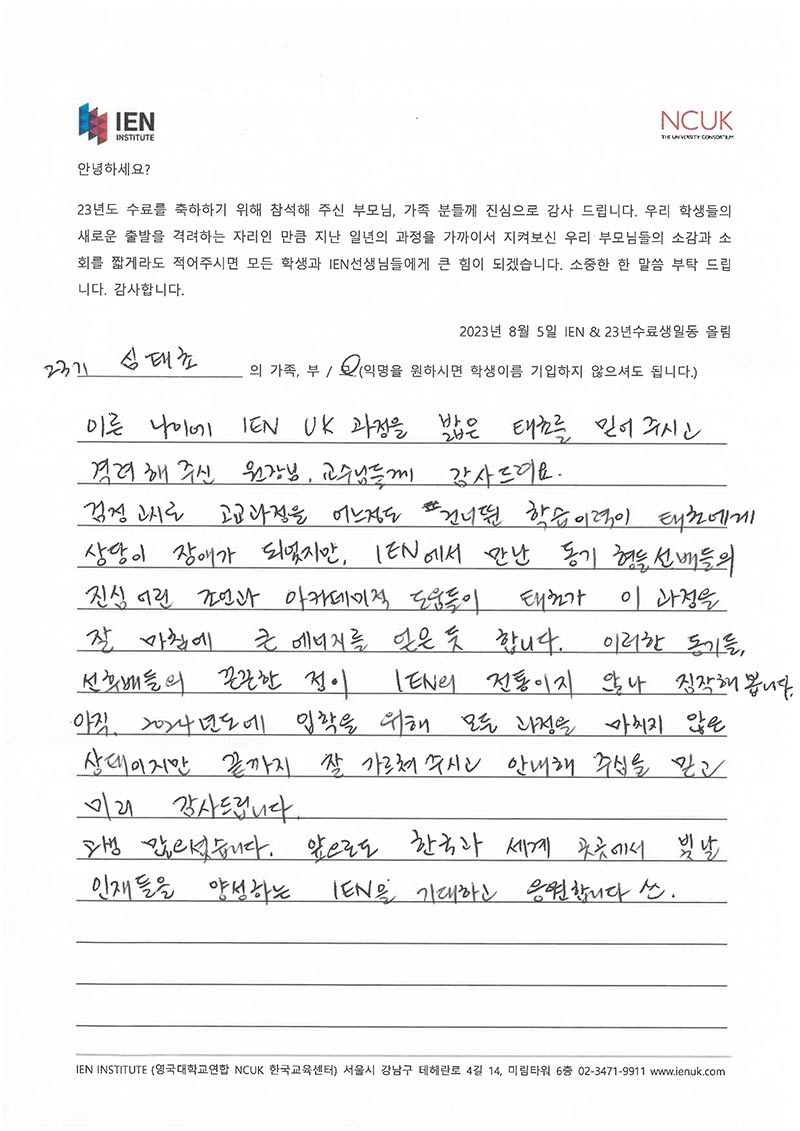 IEN
INSTITUTE
NCUK
THE UNIVERSITY CONSORTIUM
안녕하세요?
23년도 수료를 축하하기 위해 참석해 주신 부모님, 가족 분들께 진심으로 감사 드립니다. 우리 학생들의
새로운 출발을 격려하는 자리인 만큼 지난 일년의 과정을 가까이서 지켜보신 우리 부모님들의 소감과 소
회를 짧게라도 적어주시면 모든 학생과 IEN선생님들에게 큰 힘이 되겠습니다. 소중한 한 말씀 부탁 드립
니다. 감사합니다.
2023년 8월 5일 IEN & 23년수료생일동 올림
23기 심태초 의 가족, 부 / 모 (익명을 원하시면 학생이름 기입하지 않으셔도 됩니다.)
이른 나이에 IEN UK 과정을 밟은 태초를 믿어 주시고
격려해 주신 원장님, 교수님들께 감사드려요.
검정고시로 고교과정을 어느정도 건너뛴 학습이력이 태초에게
상당이 장애가 되었지만, IEN에서 만난 동기 형들 선배들의
진심 어린 조언과 아카데미적 도움들이 태초가 이 과정을
잘 마침에 큰 에너지를 얻은 듯 합니다. 이러한 동기들,
선후배들의 끈끈한 점이 IEN의 전통이지 않나 짐작해 봅니다.
아직, 2024년도에 입학을 위해 모든 과정을 마치지 않은
상태이지만 끝까지 잘 가르쳐 주시고 안내해 주심을 믿고
미리 감사드립니다.
고생 많으셨습니다. 앞으로도 한국과 세계 곳곳에서 빛날
인재들을 양성하는 IEN을 기대하고 응원합니다
IEN INSTITUTE (영국대학교연합 NCUK 한국교육센터) 서울시 강남구 테헤란로 4길 14, 미림타워 6층 02-3471-9911 www.ienuk.com